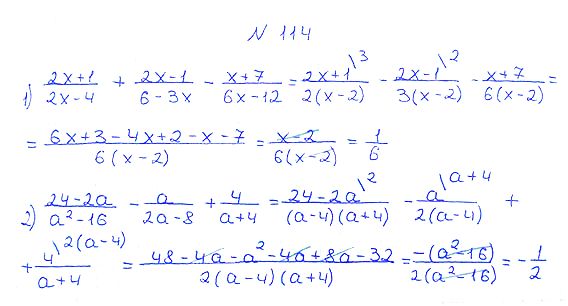 N 114
1) \frac{2x+1}{2x-4} + \frac{2x-1}{6-3x} - \frac{x+7}{6x-12} = \frac{2x+1^{\backslash 3}}{2(x-2)} - \frac{2x-1^{\backslash 2}}{3(x-2)} - \frac{x+7}{6(x-2)} =
= \frac{6x+3-4x+2-x-7}{6(x-2)} = \frac{x-2}{6(x-2)} = \frac{1}{6}
2) \frac{24-2a}{a^2-16} - \frac{a}{2a-8} + \frac{4}{a+4} = \frac{24-2a^{\backslash 2}}{(a-4)(a+4)} - \frac{a^{\backslash a+4}}{2(a-4)} +
+ \frac{4^{\backslash 2(a-4)}}{a+4} = \frac{48-4a-a^2-4a+8a-32}{2(a-4)(a+4)} = \frac{-(a^2-16)}{2(a^2-16)} = -\frac{1}{2}